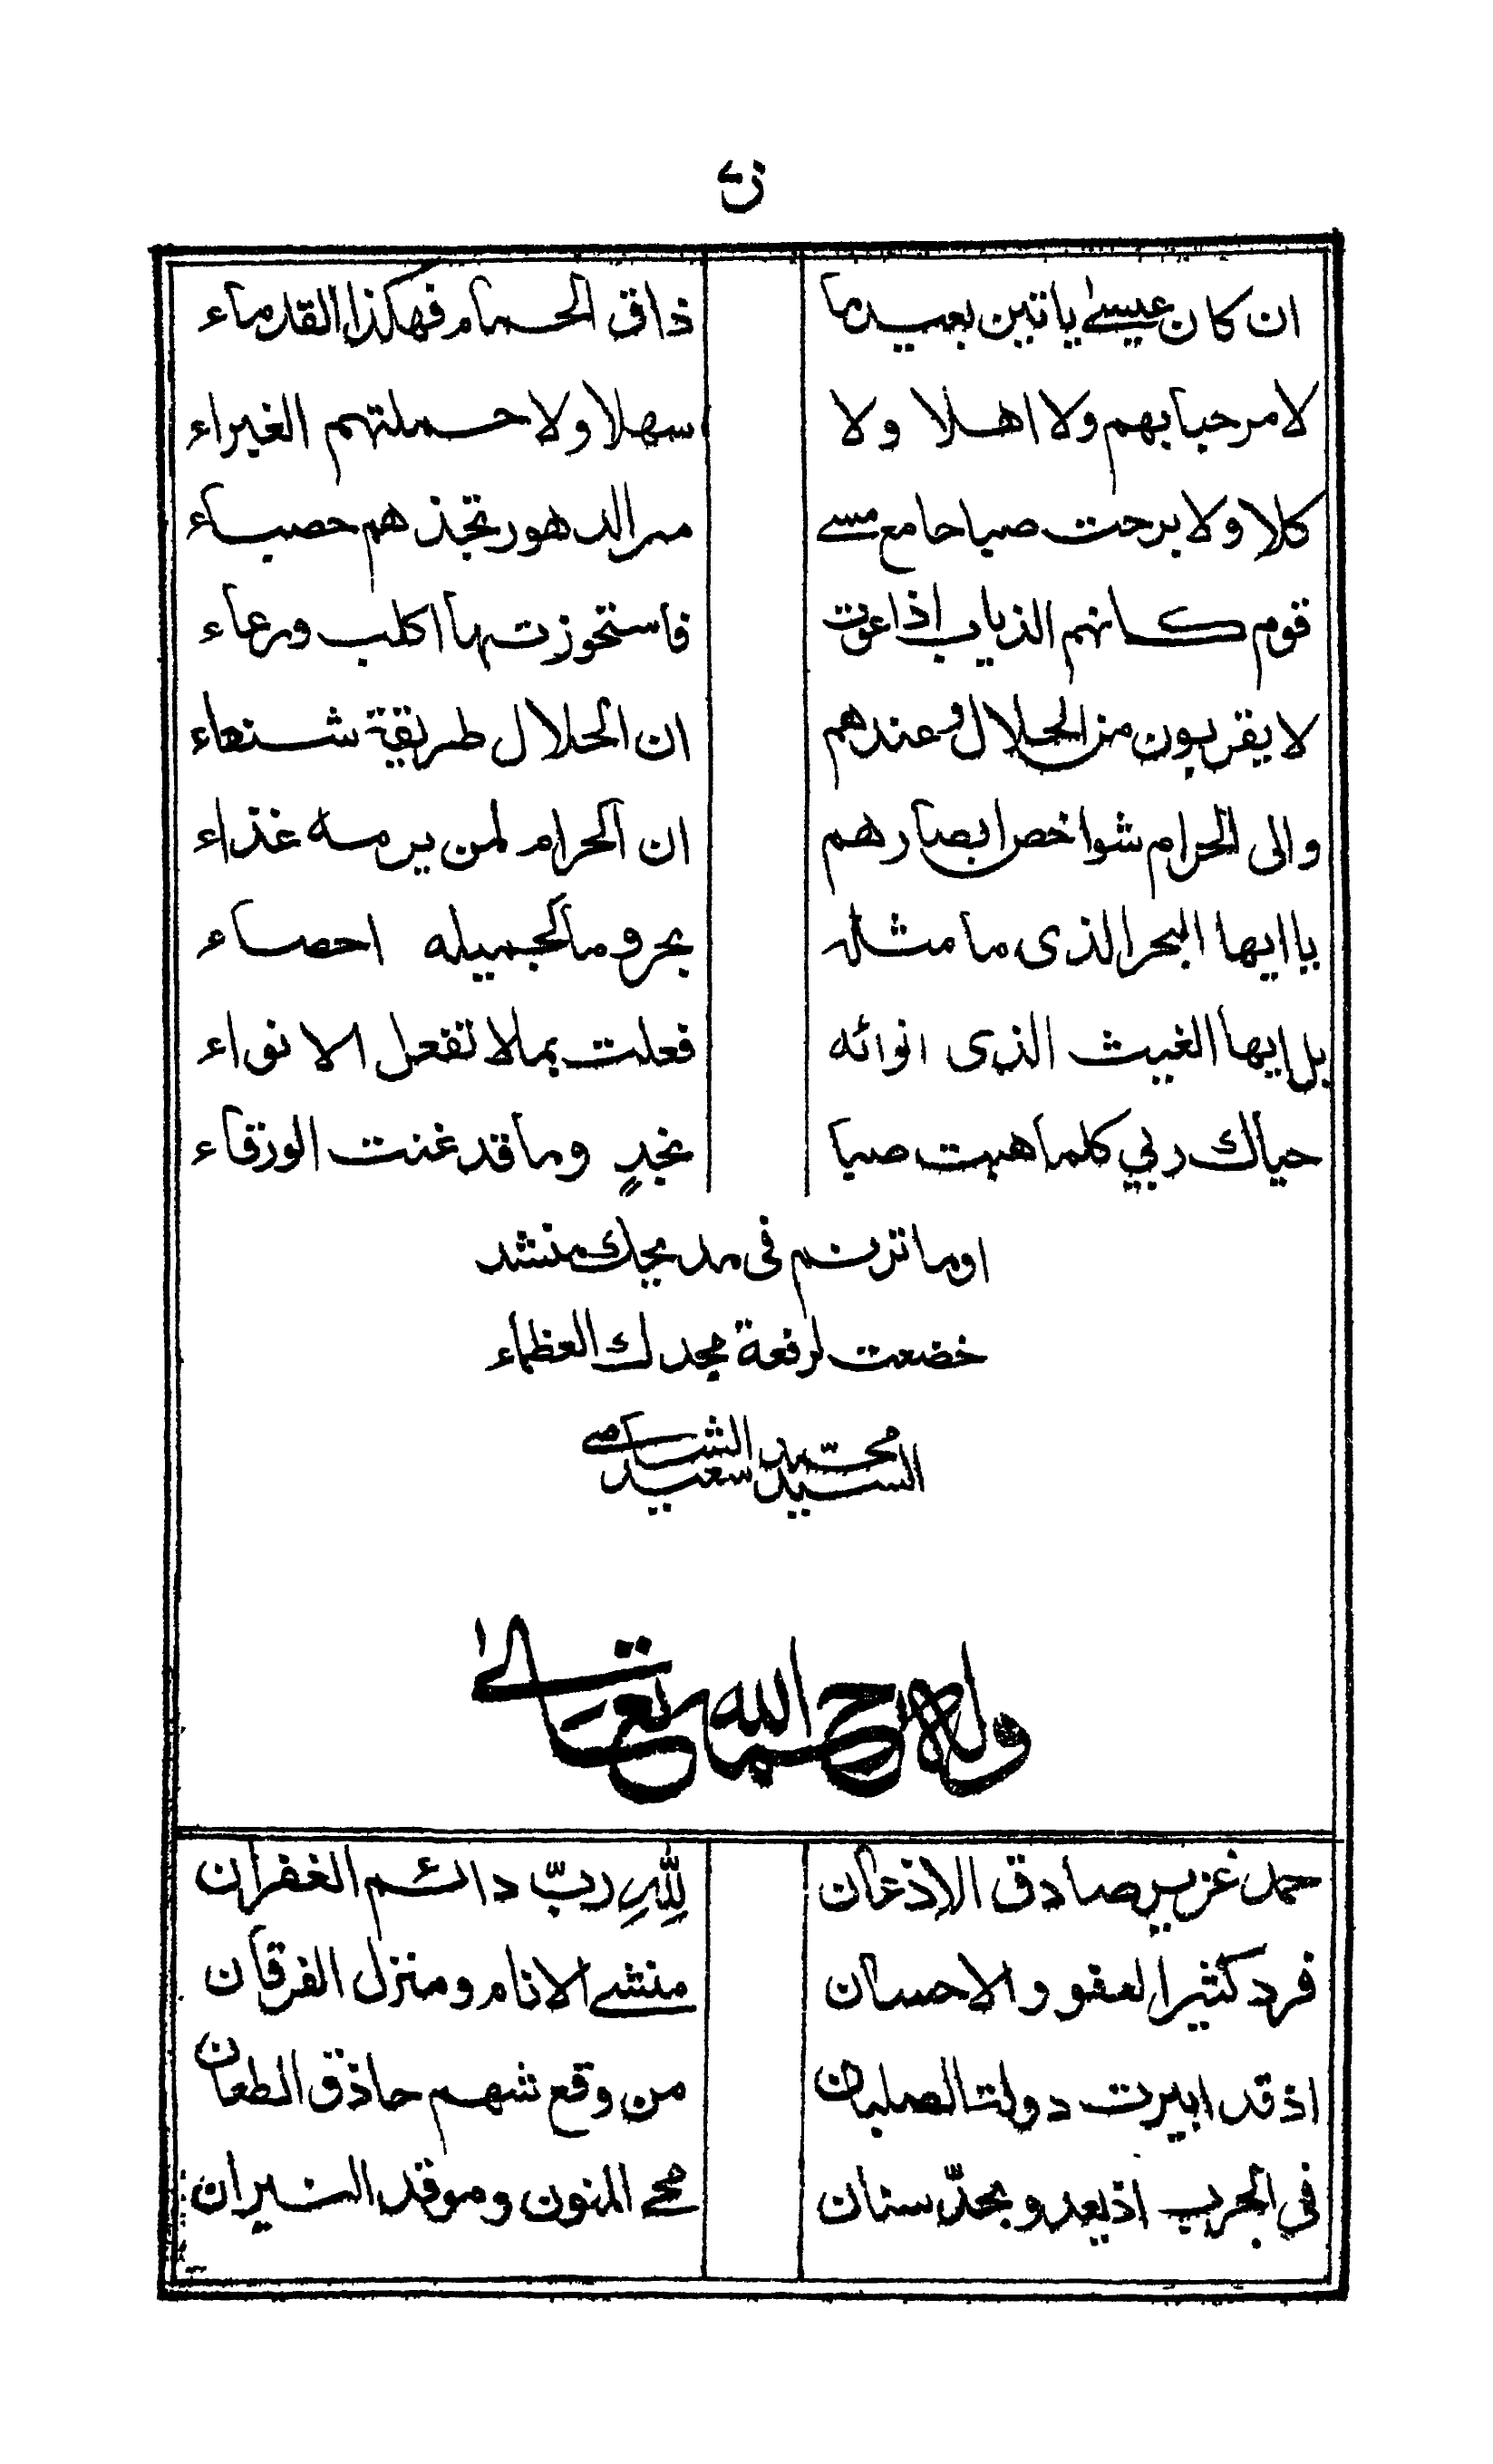 ان كان عيسى ياتين بعيدما ذاق الحمام فهكذا القدماء
لا مرحبا بهم ولا اهلا ولا سهلا ولا حملتهم الغبراء
كلا ولا برحت صباحا مع مسى مر الدهور تجذهم حصباء
قوم كانهم الذياب اذا عوت فاستحوزتها اكلب ورعاء
لا يقربون من الحلال وعندهم ان الحلال طريقة شنعاء
والى الحرام شواخص ابصارهم ان الحرام لمن يرمه غذاء
يا ايها البحر الذى ما مثله بحر وما لجميله احصاء
بل ايها الغيث الذى انوائه فعلت بما لا تفعل الانواء
حياك ربي كلما هبت صبا نجدٍ وما قد غنت الورقاء
او ما ترنم فى مديحك منشد
خضعت لرفعة مجدك العظماء
السيد محمد سعيد الشامى
وله رحمه الله تعالى
حمد عزيز صادق الاذعان للهِ ربّ دائم الغفران
فرد كثير العفو والاحسان منشى الانام ومنزل الفرقان
اذ قد ابيرت دولت الصلبان من وقع شهم حاذق الطعان
في الحرب اذ يعدو بحدّ سنان محى المنون وموقد النيران